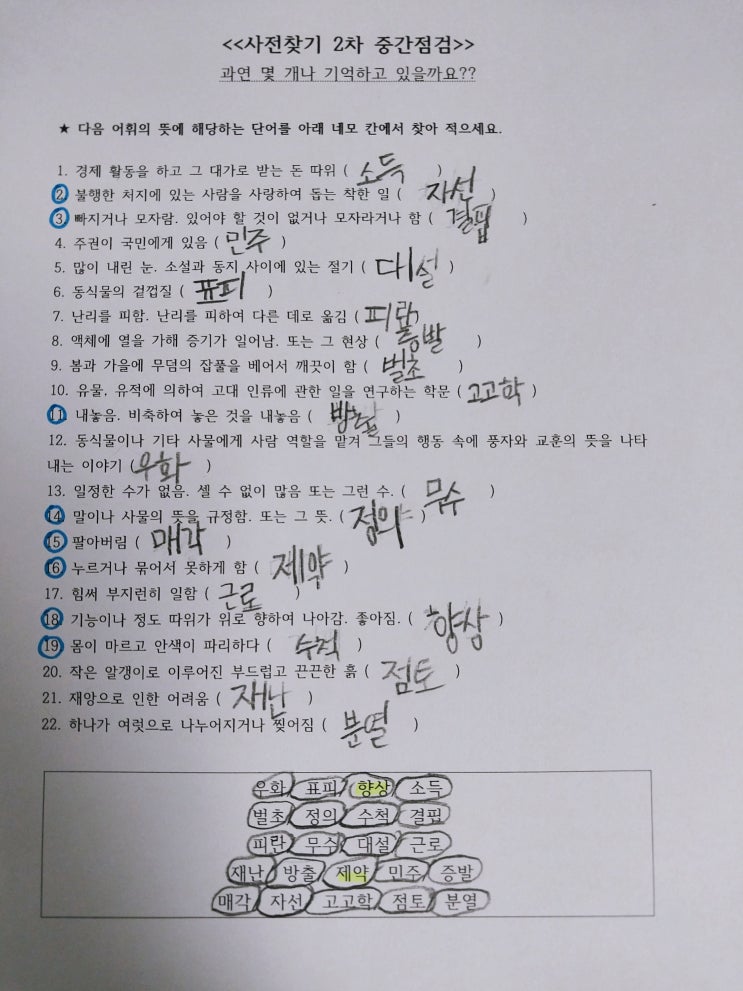 <<사전찾기 2차 중간점검>>
과연 몇 개나 기억하고 있을까요??
★ 다음 어휘의 뜻에 해당하는 단어를 아래 네모 칸에서 찾아 적으세요.
1. 경제 활동을 하고 그 대가로 받는 돈 따위 ( 소득 )
2. 불행한 처지에 있는 사람을 사랑하여 돕는 착한 일 ( 자선 )
3. 빠지거나 모자람. 있어야 할 것이 없거나 모자라거나 함 ( 결핍 )
4. 주권이 국민에게 있음 ( 민주 )
5. 많이 내린 눈. 소설과 동지 사이에 있는 절기 ( 대설 )
6. 동식물의 겉껍질 ( 표피 )
7. 난리를 피함. 난리를 피하여 다른 데로 옮김 ( 피란 )
8. 액체에 열을 가해 증기가 일어남. 또는 그 현상 ( 증발 )
9. 봄과 가을에 무덤의 잡풀을 베어서 깨끗이 함 ( 벌초 )
10. 유물, 유적에 의하여 고대 인류에 관한 일을 연구하는 학문 ( 고고학 )
11. 내놓음. 비축하여 놓은 것을 내놓음 ( 방출 )
12. 동식물이나 기타 사물에게 사람 역할을 맡겨 그들의 행동 속에 풍자와 교훈의 뜻을 나타
내는 이야기 ( 우화 )
13. 일정한 수가 없음. 셀 수 없이 많음 또는 그런 수. ( 무수 )
14. 말이나 사물의 뜻을 규정함. 또는 그 뜻. ( 정의 )
15. 팔아버림 ( 매각 )
16. 누르거나 묶어서 못하게 함 ( 제약 )
17. 힘써 부지런히 일함 ( 근로 )
18. 기능이나 정도 따위가 위로 향하여 나아감. 좋아짐. ( 향상 )
19. 몸이 마르고 안색이 파리하다 ( 수척 )
20. 작은 알갱이로 이루어진 부드럽고 끈끈한 흙 ( 점토 )
21. 재앙으로 인한 어려움 ( 재난 )
22. 하나가 여럿으로 나누어지거나 찢어짐 ( 분열 )
우화 표피 향상 소득
벌초 정의 수척 결핍
피란 무수 대설 근로
재난 방출 제약 민주 증발
매각 자선 고고학 점토 분열